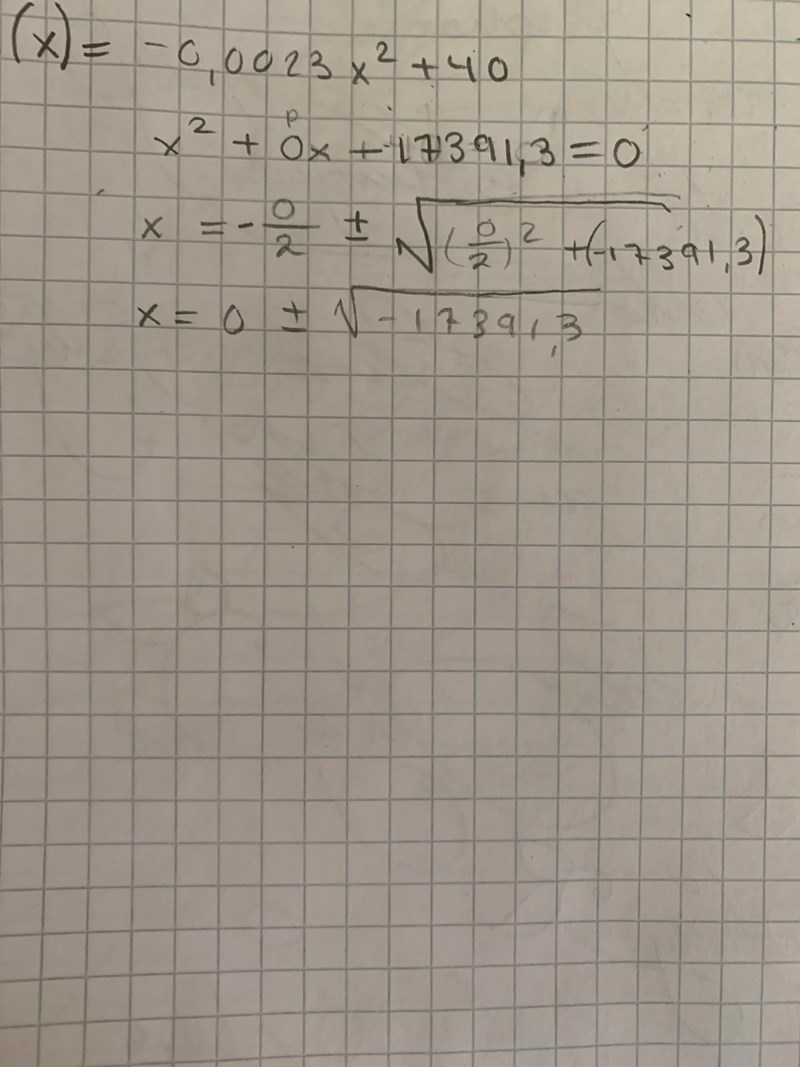 (x) = -0,0023x² + 40
x² + 0x + 17391,3 = 0
p
x = - 0/2 ± √(0/2)² + (-17391,3)
x = 0 ± √-17391,3